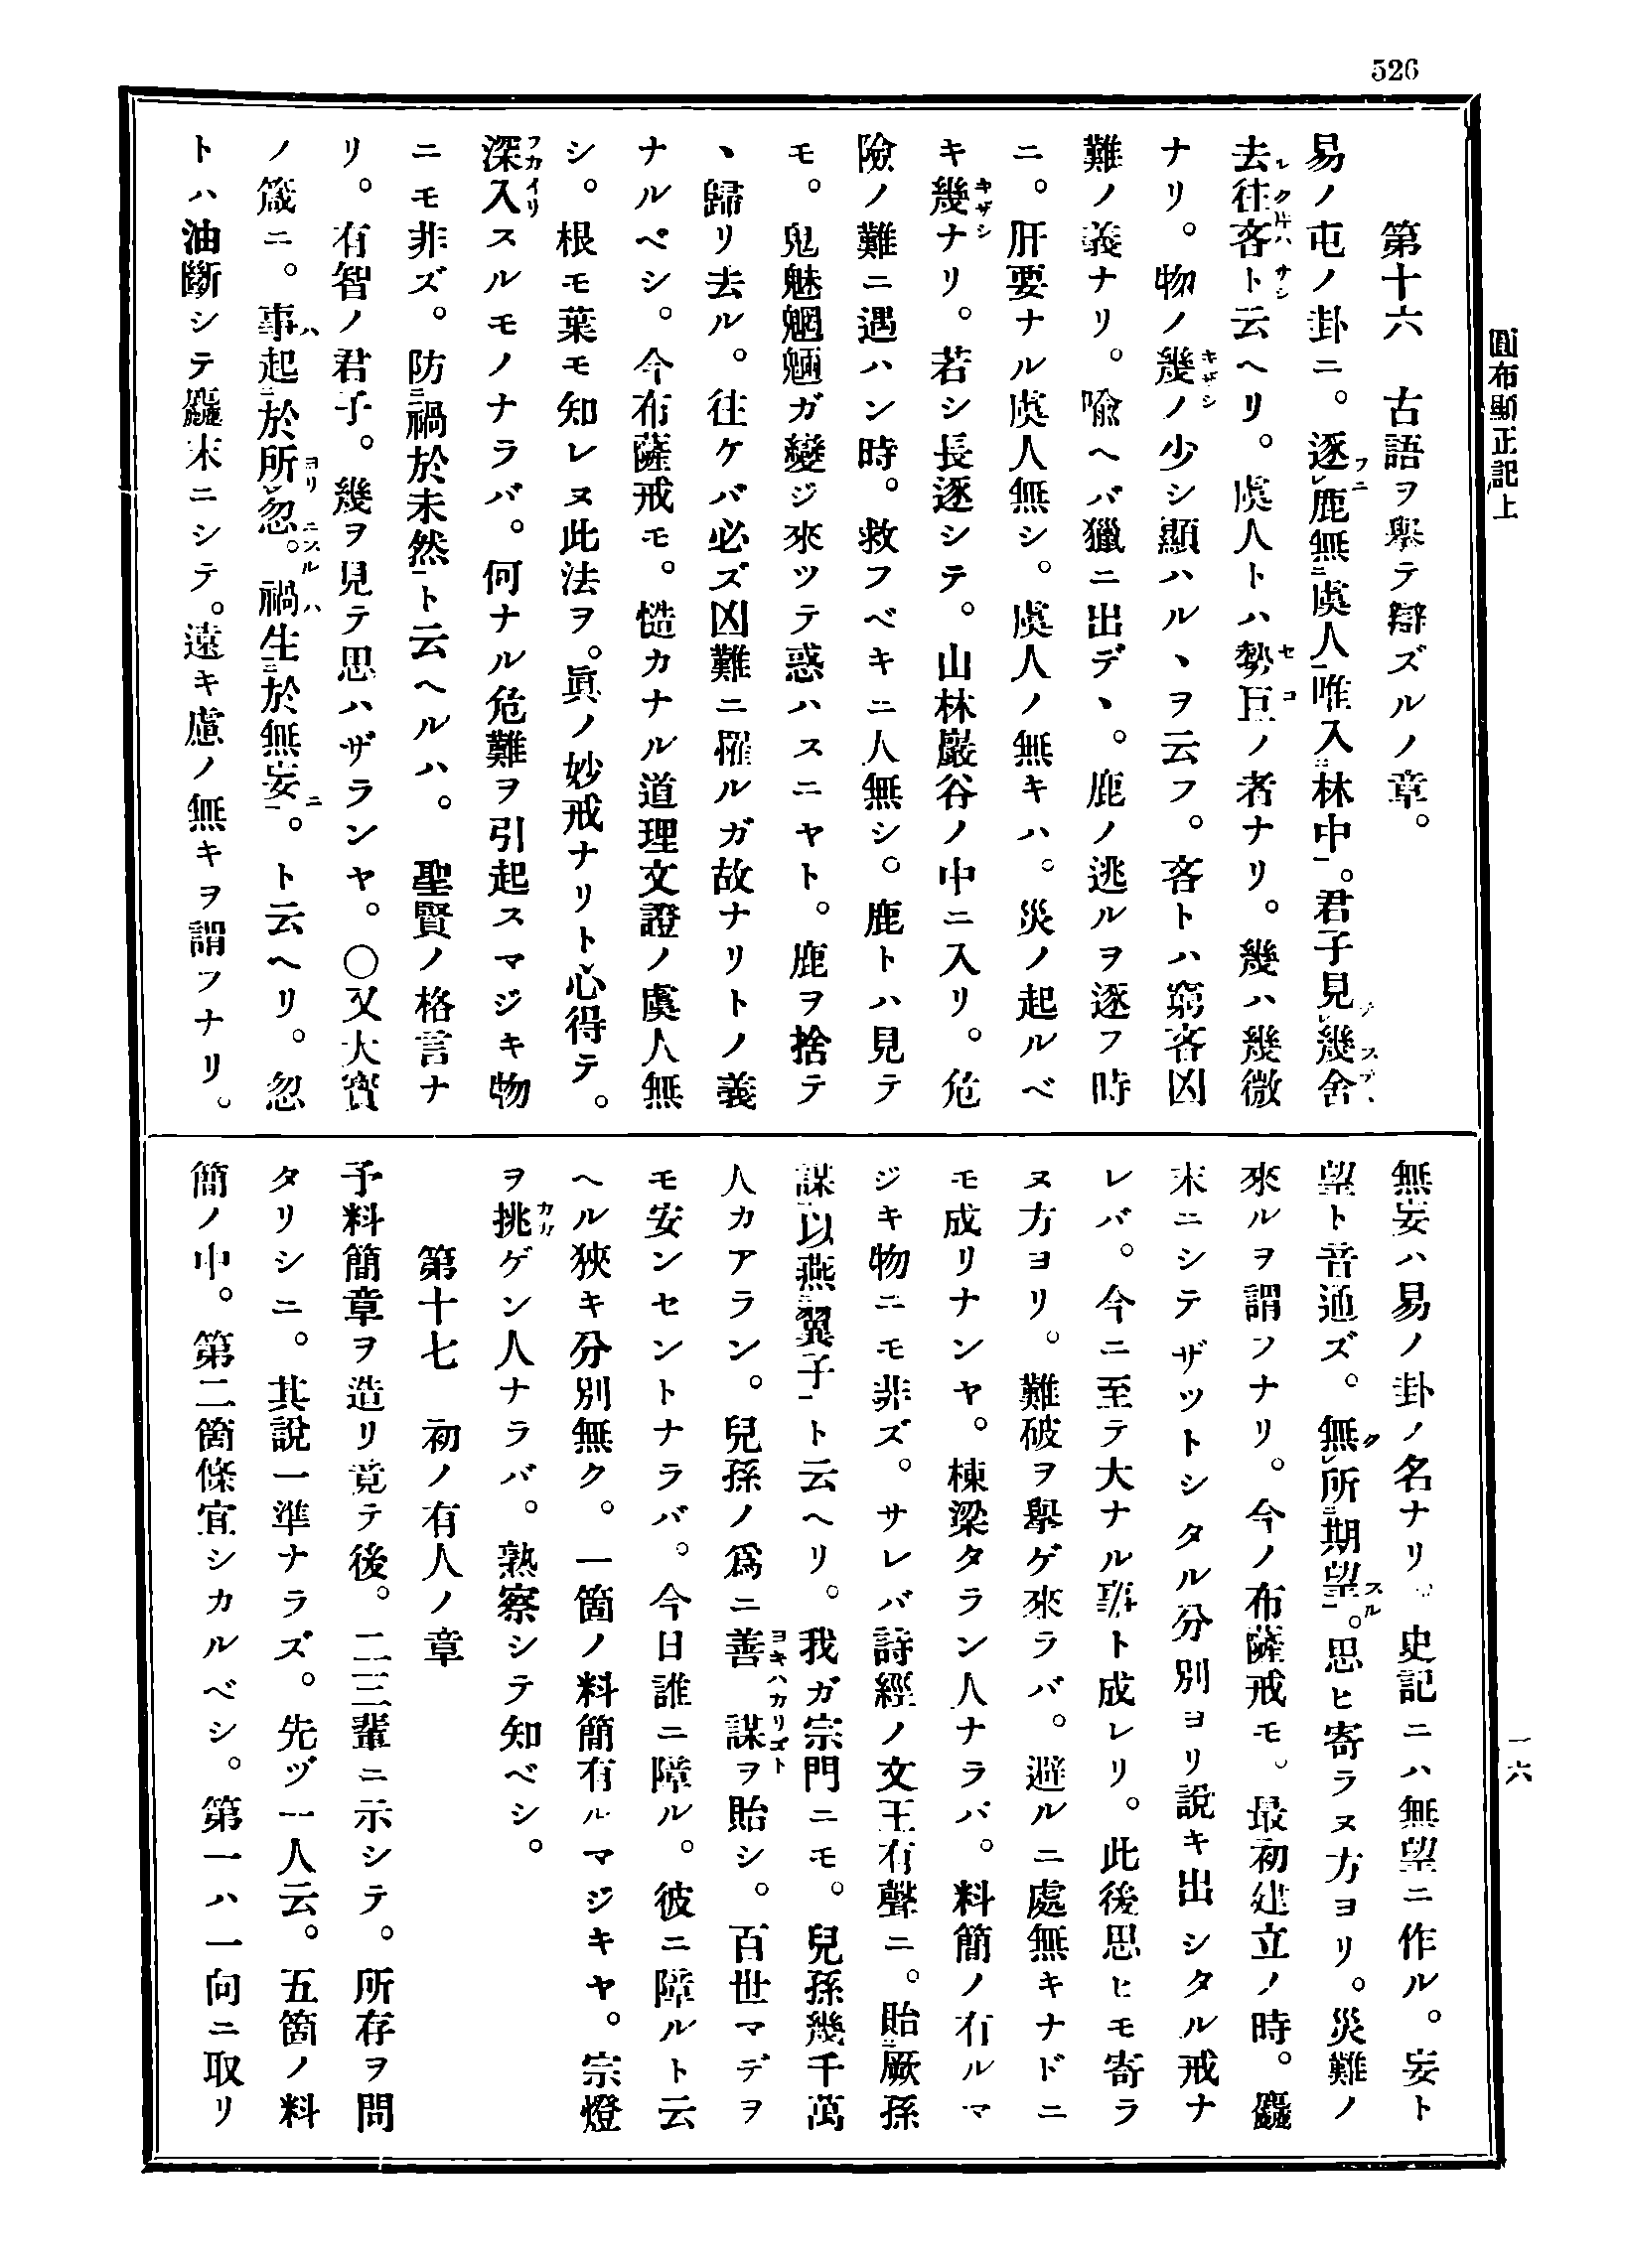 526
圓布顯正記上
一六
第十六　古語ヲ擧テ辯ズルノ章。
易ノ屯ノ卦ニ。逐レ鹿無ニ虞人一唯入ニ林中一。君子見レ幾舍
去往吝ト云ヘリ。虞人トハ勢巨ノ者ナリ。幾ハ幾微
ナリ。物ノ幾ノ少シ顯ハル、ヲ云フ。吝トハ窮吝凶
難ノ義ナリ。喩ヘバ獵ニ出デ、。鹿ノ逃ルヲ逐フ時
ニ。肝要ナル虞人無シ。虞人ノ無キハ。災ノ起ルベ
キ幾ナリ。若シ長逐シテ。山林巖谷ノ中ニ入リ。危
險ノ難ニ遇ハン時。救フベキニ人無シ。鹿トハ見テ
モ。鬼魅魍魎ガ變ジ來ツテ惑ハスニヤト。鹿ヲ捨テ
、歸リ去ル。往ケバ必ズ凶難ニ罹ルガ故ナリトノ義
ナルベシ。今布薩戒モ。慥カナル道理文證ノ虞人無
シ。根モ葉モ知レヌ此法ヲ。眞ノ妙戒ナリト心得テ。
深入スルモノナラバ。何ナル危難ヲ引起スマジキ物
ニモ非ズ。防ニ禍於未然一ト云ヘルハ。　聖賢ノ格言ナ
リ。有智ノ君子。幾ヲ見テ思ハザランヤ。〇又大寳
ノ箴ニ。事起ニ於所レ忽。禍生ニ於無妄一。ト云ヘリ。忽
トハ油斷シテ麤末ニシテ。遠キ慮ノ無キヲ謂フナリ。
無妄ハ易ノ卦ノ名ナリ。史記ニハ無望ニ作ル。妄ト
望ト音通ズ。無レ所ニ期望一。思ヒ寄ラヌ方ヨリ。災難ノ
來ルヲ謂フナリ。今ノ布薩戒モ。最初建立ノ時。麤
末ニシテザツトシタル分別ヨリ說キ出シタル戒ナ
レバ。今ニ至テ大ナル事ト成レリ。此後思ヒモ寄ラ
ヌ方ヨリ。難破ヲ擧ゲ來ラバ。避ルニ處無キナドニ
モ成リナンヤ。棟梁タラン人ナラバ。料簡ノ有ルマ
ジキ物ニモ非ズ。サレバ詩經ノ文王有聲ニ。貽ニ厥孫
謀一以燕ニ翼子一ト云ヘリ。我ガ宗門ニモ。兒孫幾千萬
人カアラン。兒孫ノ爲ニ善　謀ヲ貽シ。百世マデヲ
モ安ンセントナラバ。今日誰ニ障ル。彼ニ障ルト云
ヘル狹キ分別無ク。一箇ノ料簡有ルマジキヤ。宗燈
ヲ挑ゲン人ナラバ。熟察シテ知ベシ。
第十七　初ノ有人ノ章
予料簡章ヲ造リ竟テ後。二三輩ニ示シテ。所存ヲ問
タリシニ。其說一準ナラズ。先ヅ一人云。五箇ノ料
簡ノ中。第二箇條宜シカルベシ。第一ハ一向ニ取リ